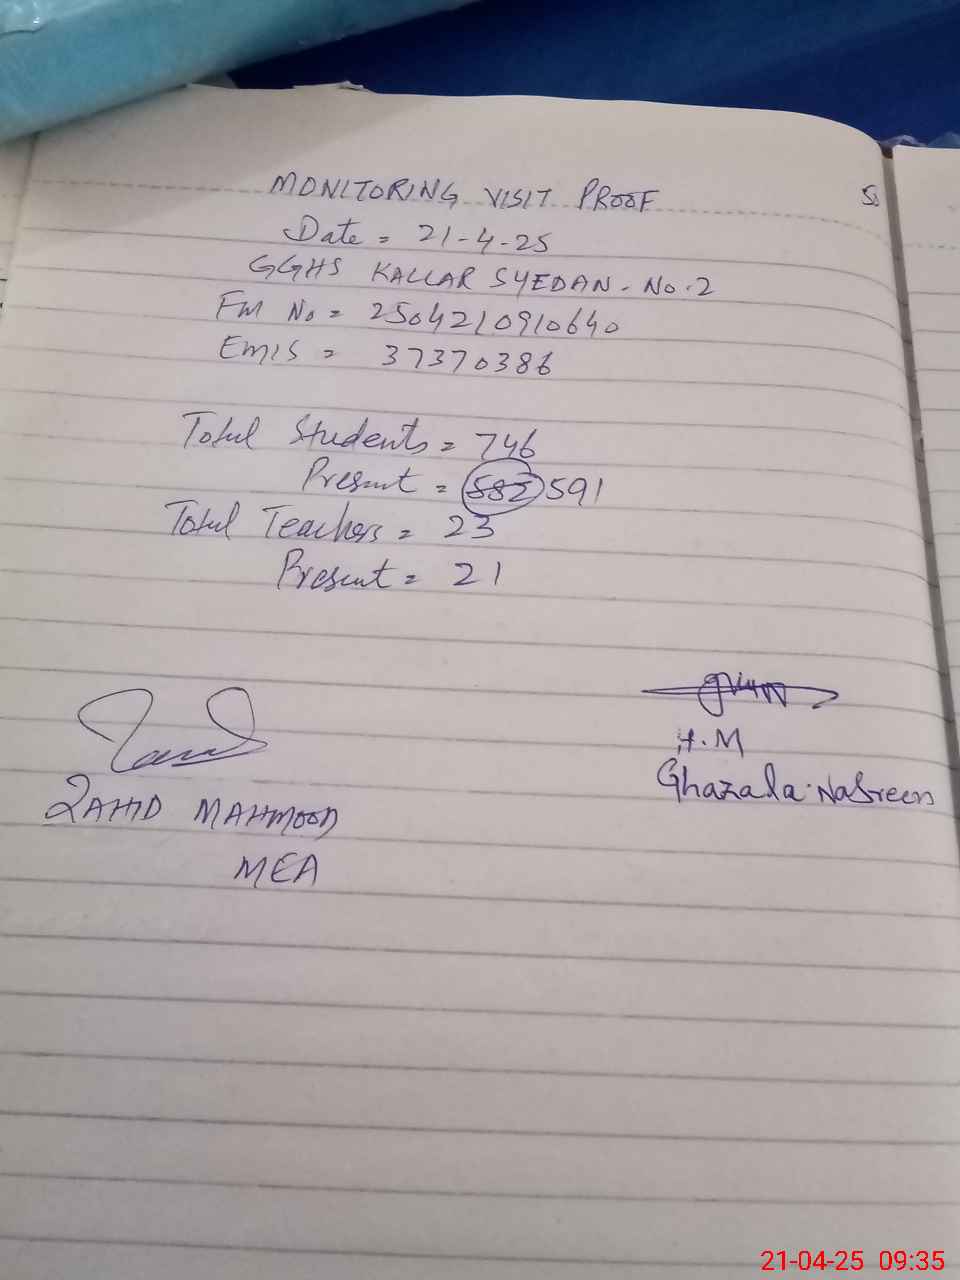 MONITORING VISIT PROOF
Date = 21-4-25
GGHS KALLAR SYEDAN - No. 2
FM No = 2504210910640
EMIS = 37370386
Total Students = 746
Present = 582 591
Total Teachers = 23
Present = 21
H.M
Ghazala Nasreen
ZAHID MAHMOOD
MEA
21-04-25 09:35